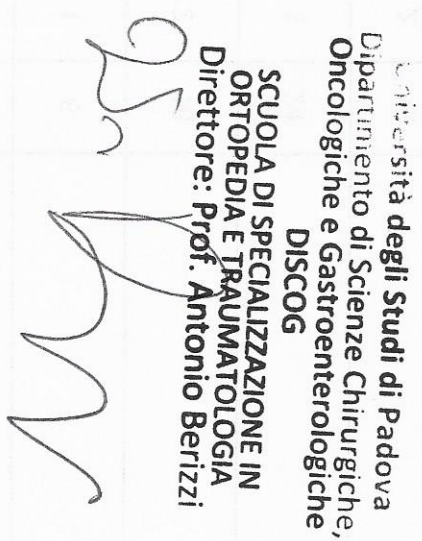 Università degli Studi di Padova
Dipartimento di Scienze Chirurgiche,
Oncologiche e Gastroenterologiche
DISCOG
SCUOLA DI SPECIALIZZAZIONE IN
ORTOPEDIA E TRAUMATOLOGIA
Direttore: Prof. Antonio Berizzi